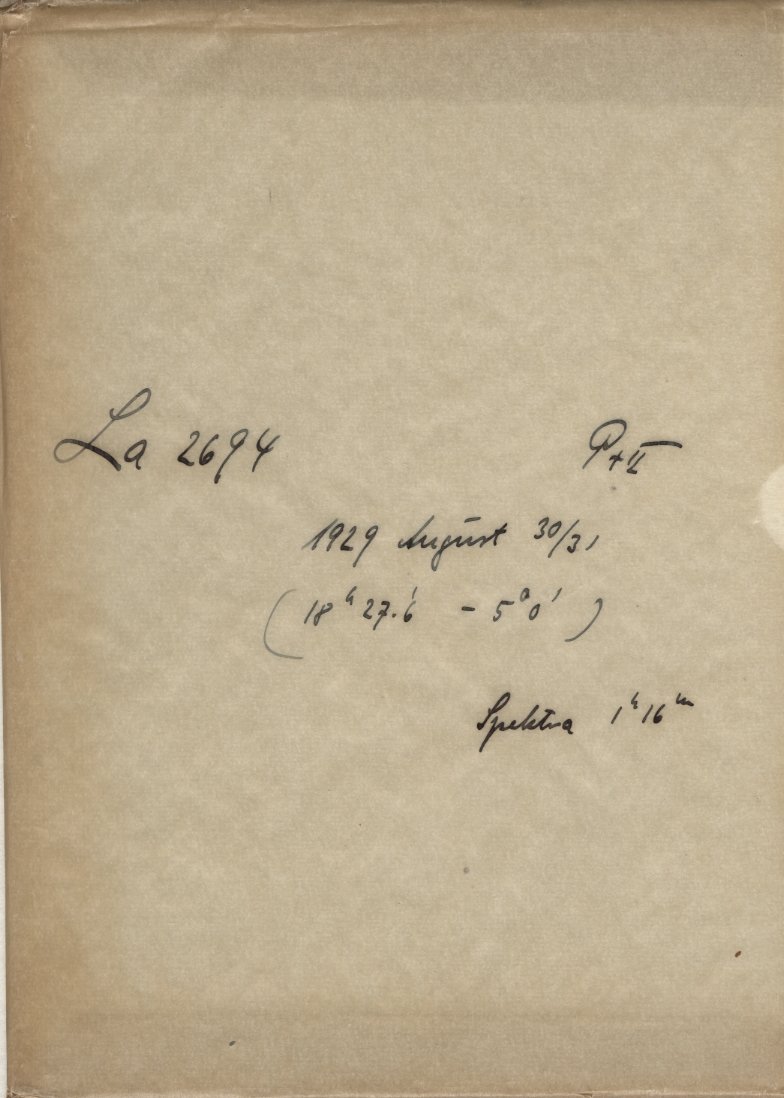 La 2694 P+II
1929 August 30/31
(18ʰ27.6' - 5°0')
Spektra 1ʰ16ᵐ